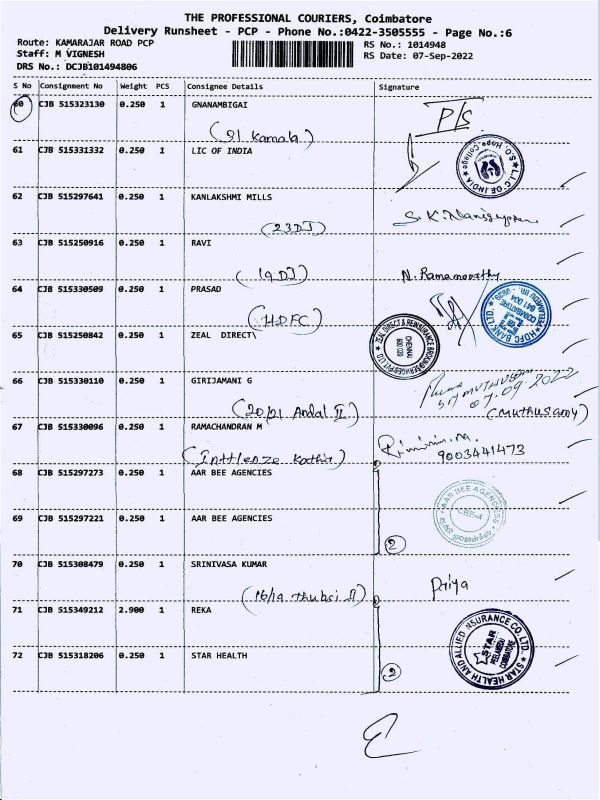 THE PROFESSIONAL COURIERS, Coimbatore
Delivery Runsheet - PCP - Phone No.:0422-3505555 - Page No.:6
Route: KAMARAJAR ROAD PCP
RS No.: 1014948
Staff: M VIGNESH
RS Date: 07-Sep-2022
DRS No.: DCJB101494806
S No Consignment No Weight PCS Consignee Details Signature
60 CJB 515323130 0.250 1 GNANAMBIGAI
P/S
61 CJB 515331332 0.250 1 LIC OF INDIA
L.I.C. OF INDIA
62 CJB 515297641 0.250 1 KANLAKSHMI MILLS
(23DJ)
63 CJB 515250916 0.250 1 RAVI
(19 DJ) N. Ramamoorthy
64 CJB 515330509 0.250 1 PRASAD
(HDFC)
HDFC BANK LTD.
65 CJB 515250842 0.250 1 ZEAL DIRECT\
CHENNAI
600 020
66 CJB 515330110 0.250 1 GIRIJAMANI G
07.09.2022
(20/21 Andal II) (MUTHUSAMY)
67 CJB 515330096 0.250 1 RAMACHANDRAN M
9003441473
68 CJB 515297273 0.250 1 AAR BEE AGENCIES
AAR BEE AGENCIES
CBE-4
69 CJB 515297221 0.250 1 AAR BEE AGENCIES
2
70 CJB 515308479 0.250 1 SRINIVASA KUMAR
(16/19 Thulsi II) Priya
71 CJB 515349212 2.900 1 REKA
72 CJB 515318206 0.250 1 STAR HEALTH
STAR HEALTH AND ALLIED INSURANCE CO. LTD.
STAR
PEELAMEDU
COIMBATORE
2